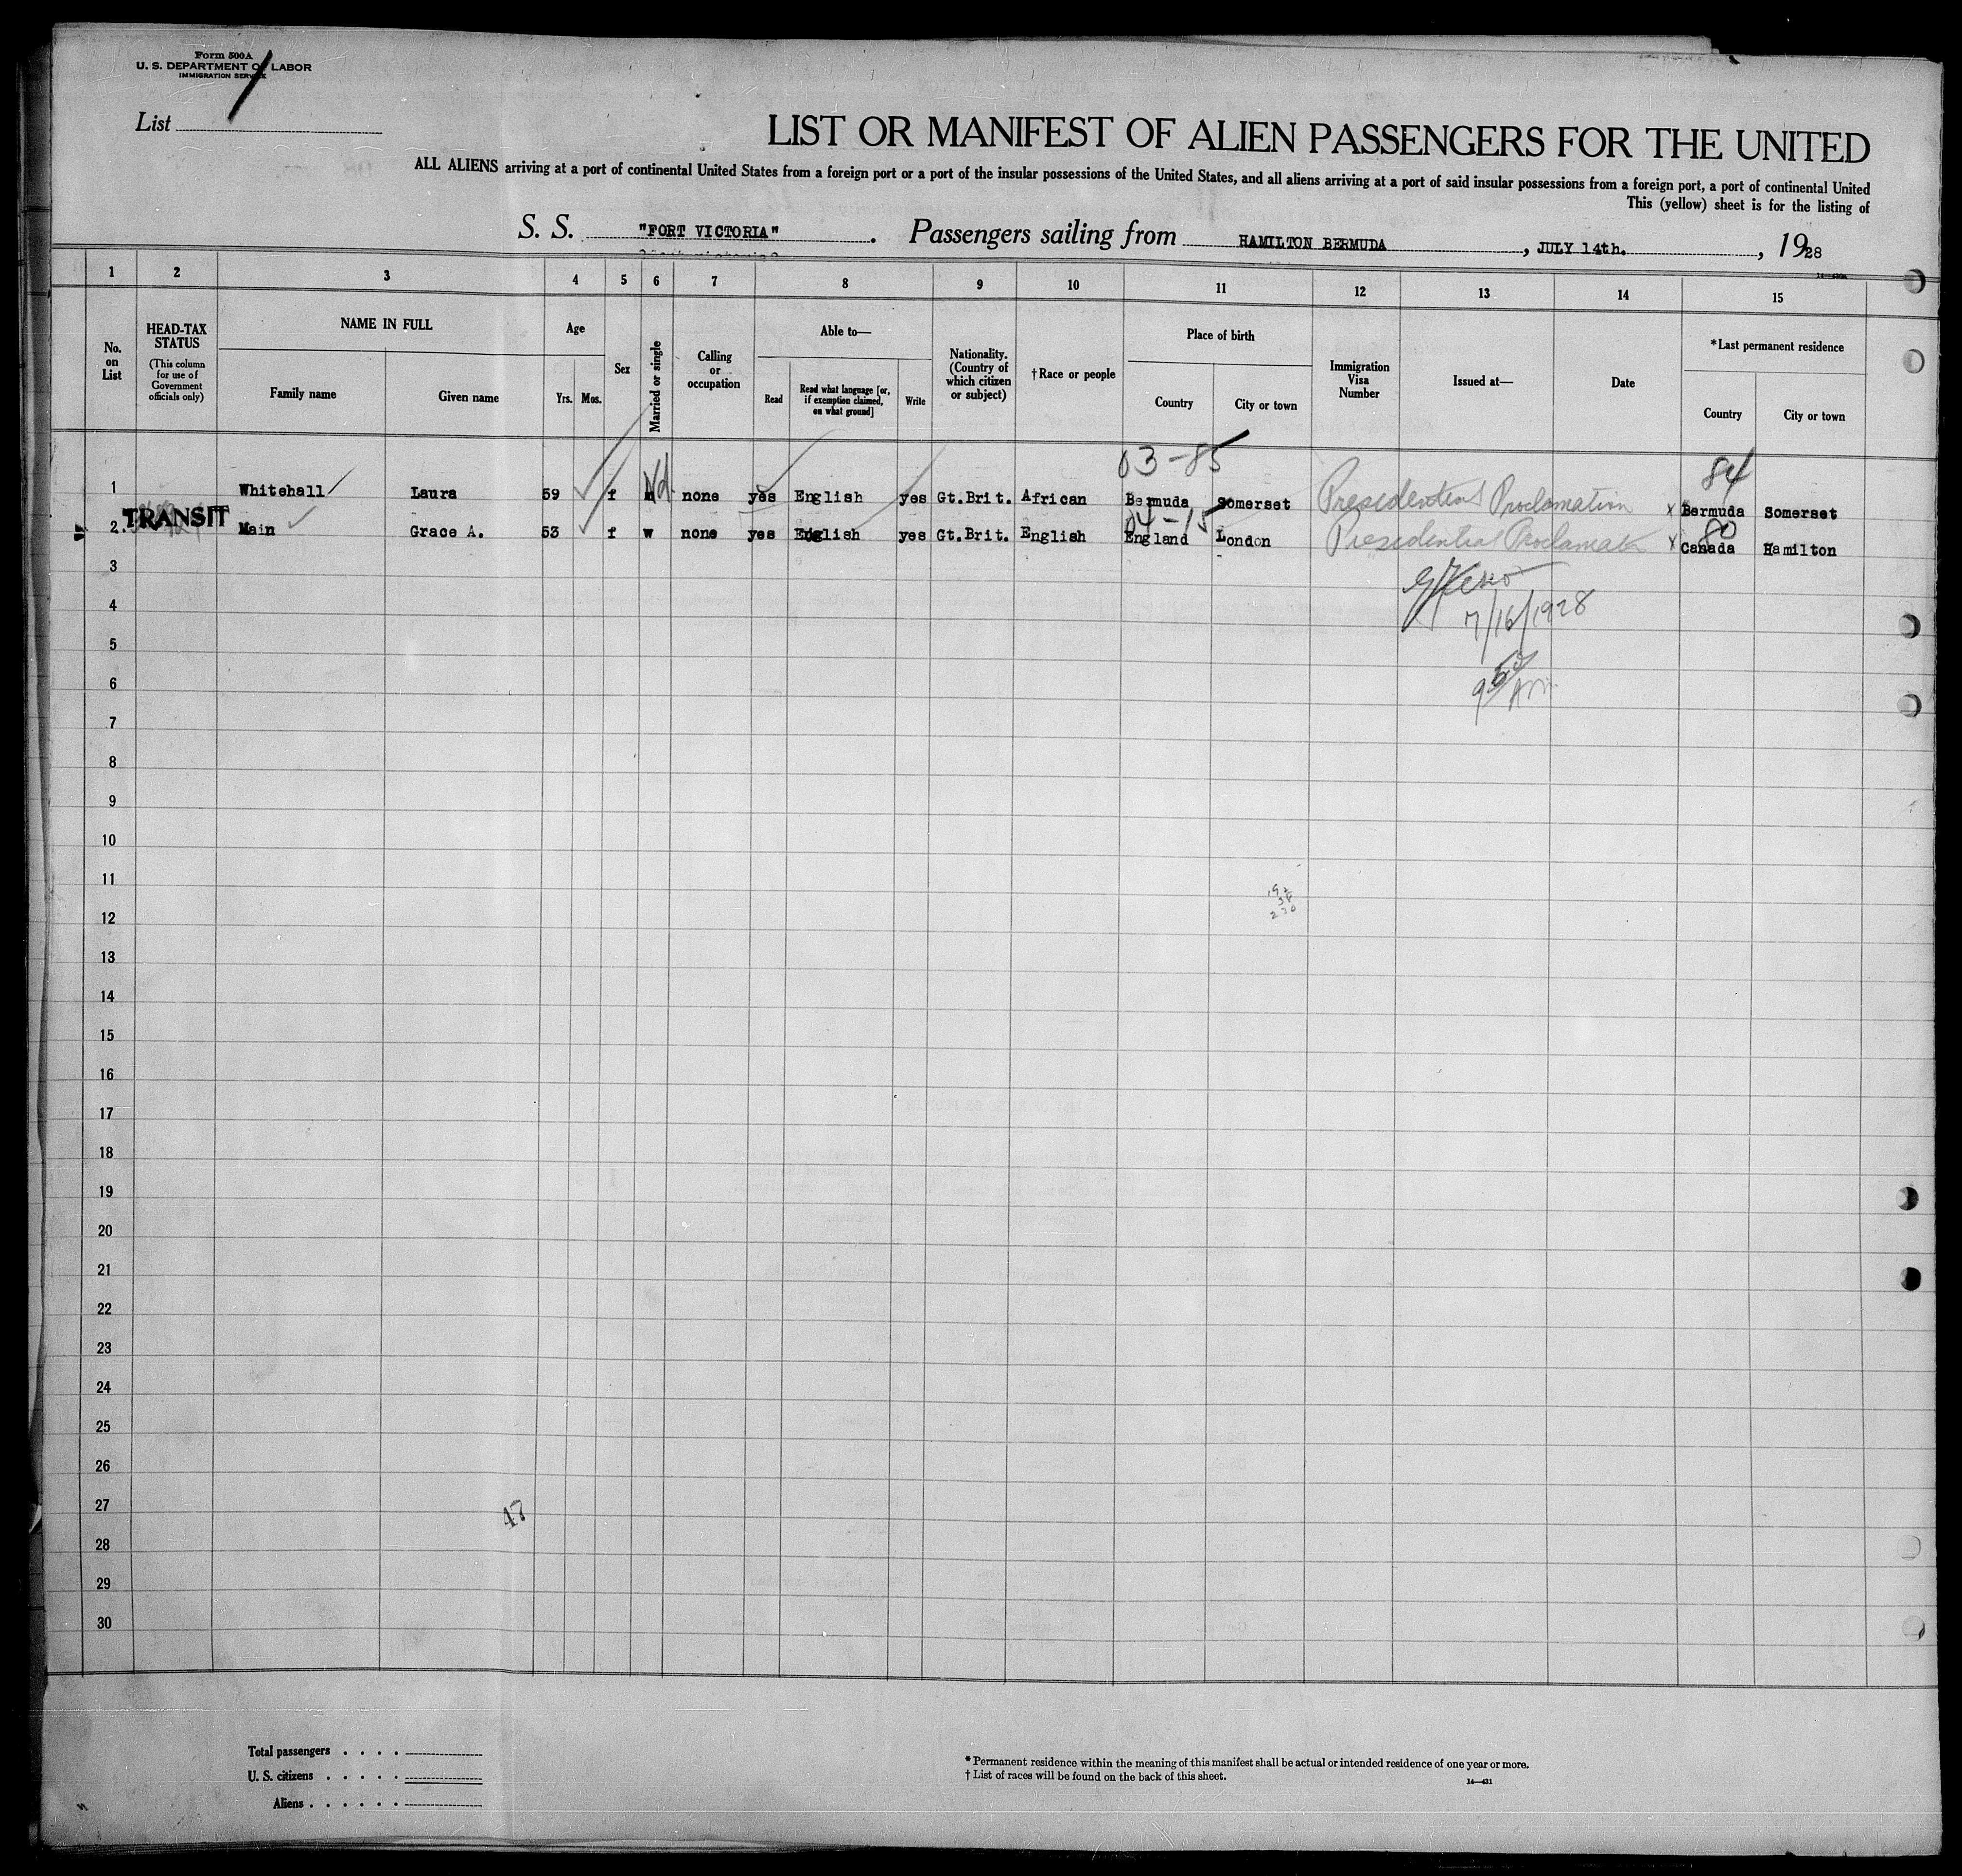 Form 500A
U. S. DEPARTMENT OF LABOR
IMMIGRATION SERVICE
List 1
LIST OR MANIFEST OF ALIEN PASSENGERS FOR THE UNITED
ALL ALIENS arriving at a port of continental United States from a foreign port or a port of the insular possessions of the United States, and all aliens arriving at a port of said insular possessions from a foreign port, a port of continental United
This (yellow) sheet is for the listing of
S. S. "FORT VICTORIA". Passengers sailing from HAMILTON BERMUDA, JULY 14th., 1928
1 2 3 4 5 6 7 8 9 10 11 12 13 14 15
No. on List
HEAD-TAX STATUS
(This column for use of Government officials only)
NAME IN FULL
Family name
Given name
Age
Yrs. Mos.
Sex
Married or single
Calling or occupation
Able to—
Read
Read what language [or, if exemption claimed, on what ground]
Write
Nationality. (Country of which citizen or subject)
†Race or people
Place of birth
Country
City or town
Immigration Visa Number
Issued at—
Date
*Last permanent residence
Country
City or town
03-85
84
1 Whitehall Laura 59 f none yes English yes Gt.Brit. African Bermuda Somerset Presidential Proclamation x Bermuda Somerset
04-15
80
2 TRANSIT Main Grace A. 53 f w none yes English yes Gt.Brit. English England London Presidential x Canada Hamilton
3
4
7/16/1928
5
6
AM
7
8
9
10
11
12
13
14
15
16
17
18
19
20
21
22
23
24
25
26
27
47
28
29
30
Total passengers . . . .
U. S. citizens . . . . .
Aliens . . . . . .
* Permanent residence within the meaning of this manifest shall be actual or intended residence of one year or more.
† List of races will be found on the back of this sheet.
14—431